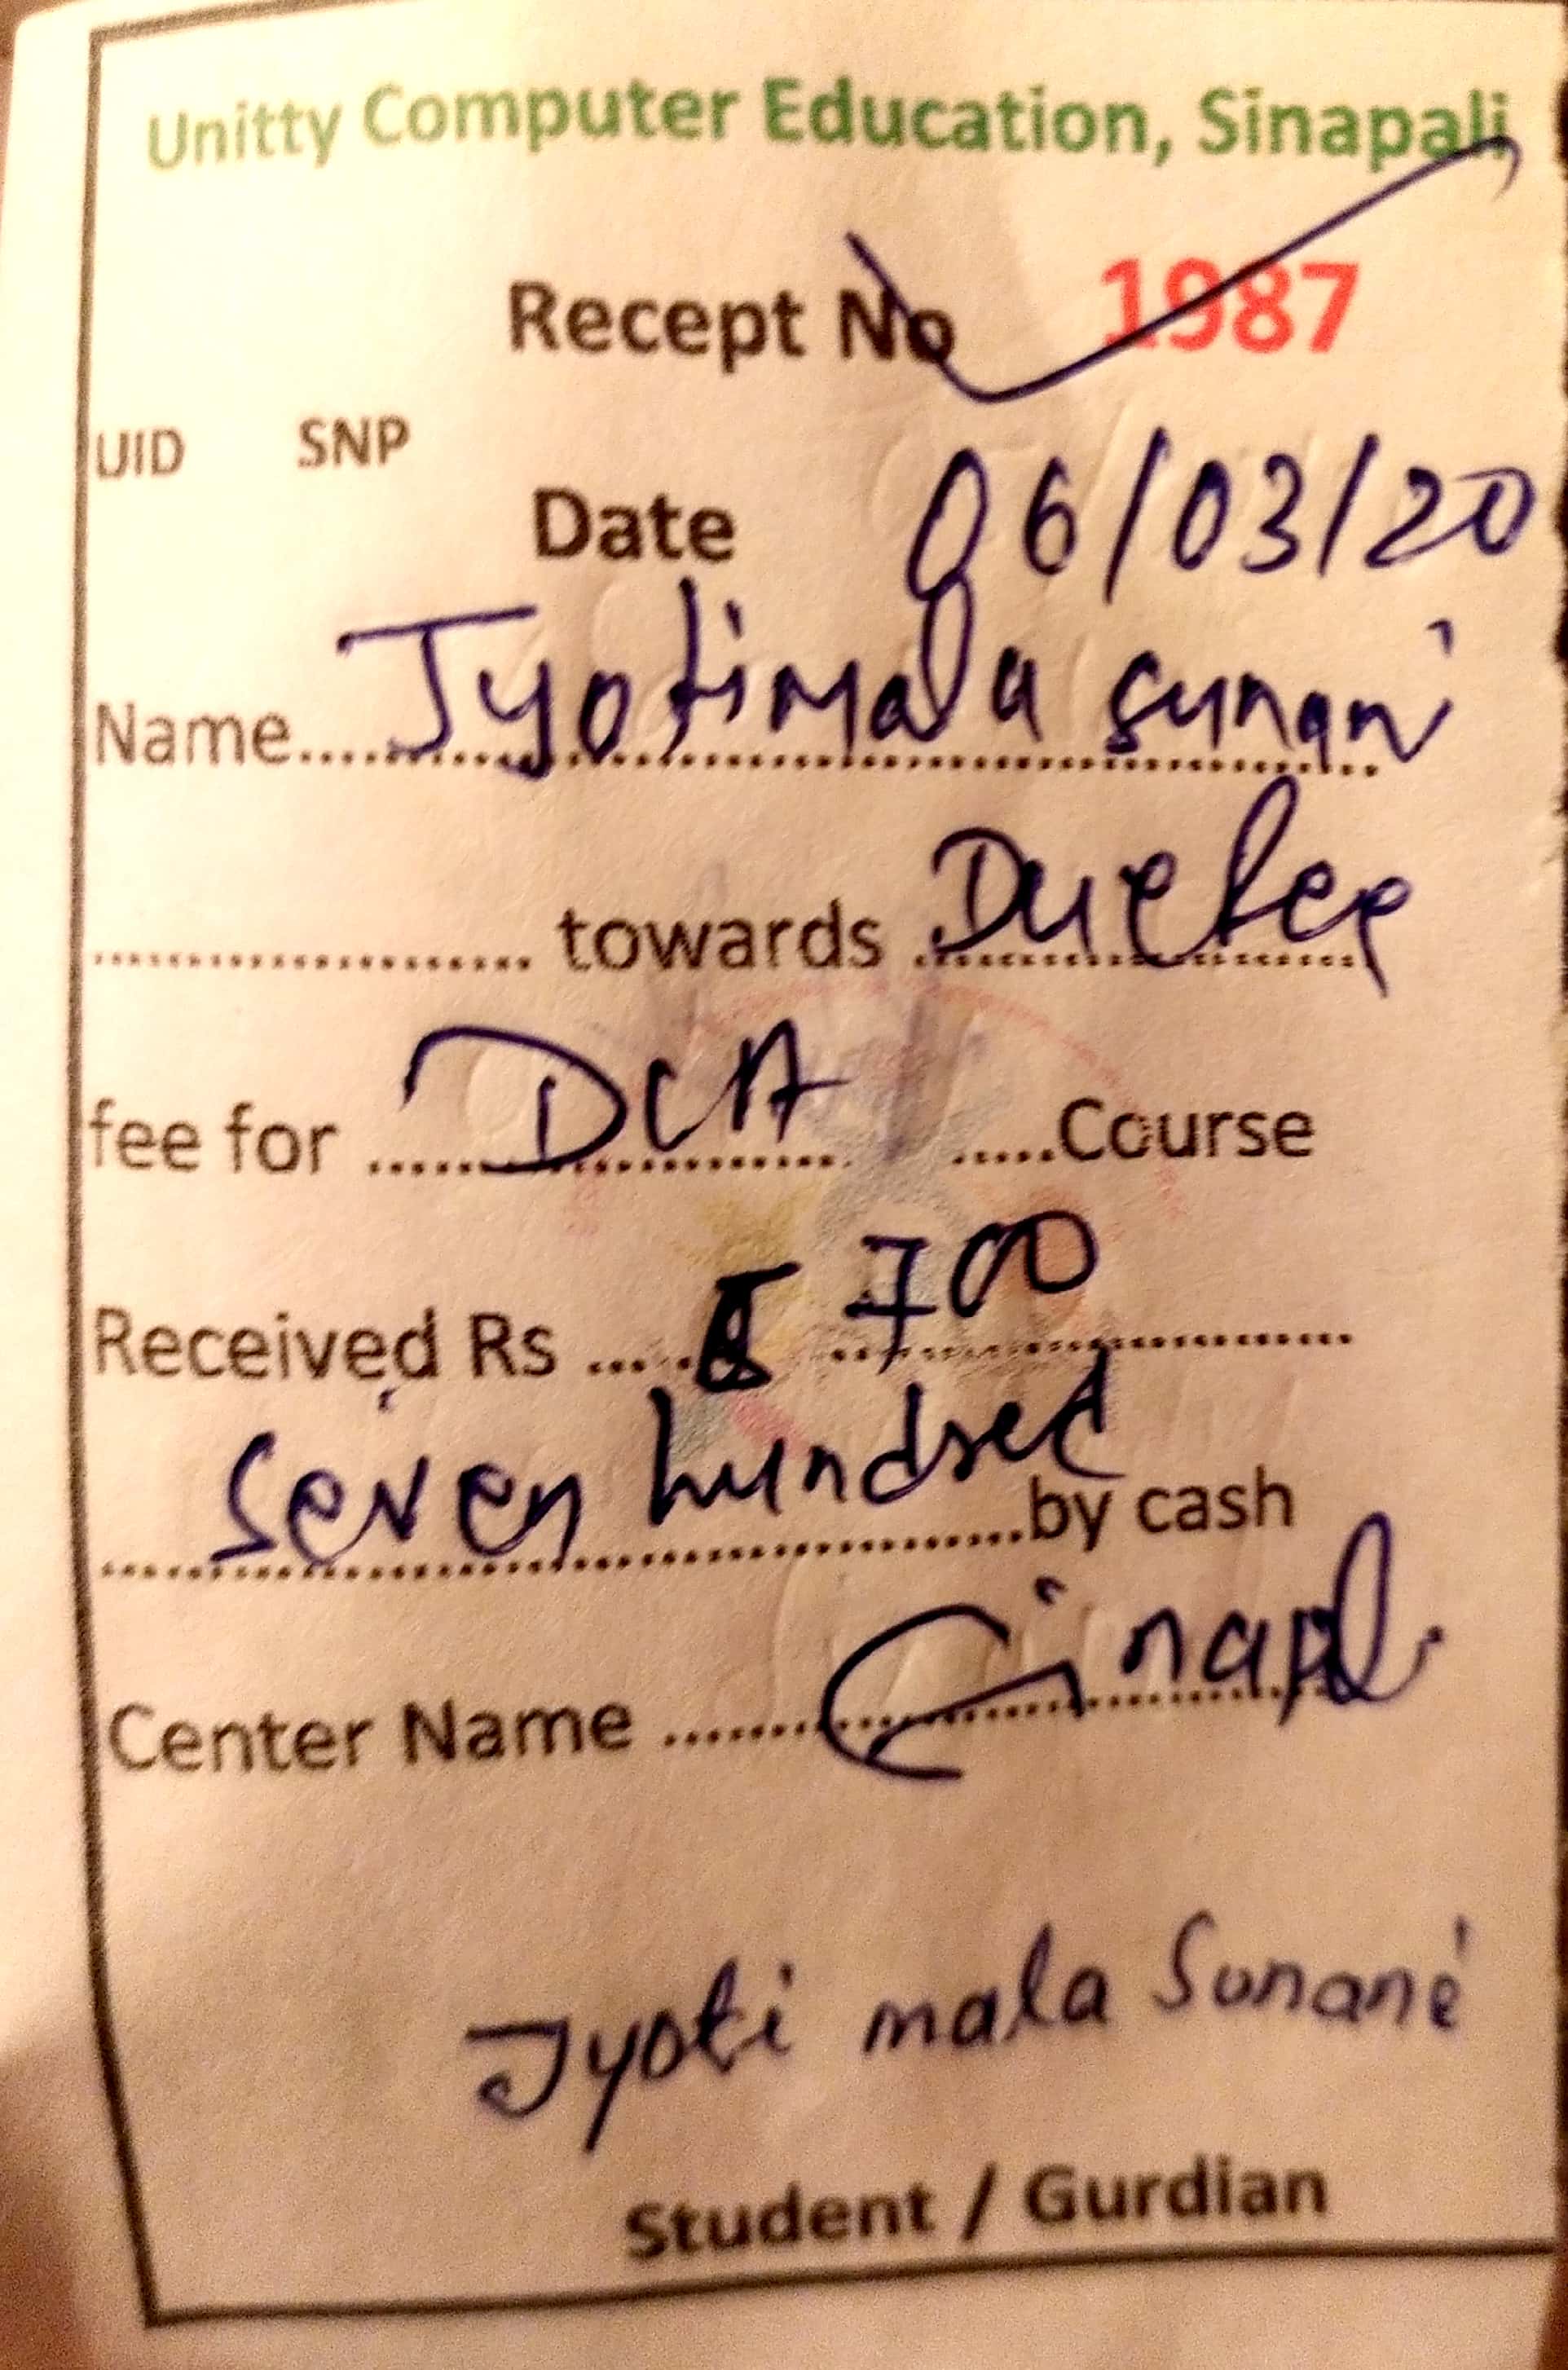 Unitty Computer Education, Sinapali
Recept No 1987
UID SNP
Date 06/03/20
Name.... Jyotimala sunani
.................... towards Due fee
fee for .... DCA .....Course
Received Rs .... 700
Seven hundred
....by cash
Center Name .... Sinapali
Jyoti mala Sunani
Student / Gurdian